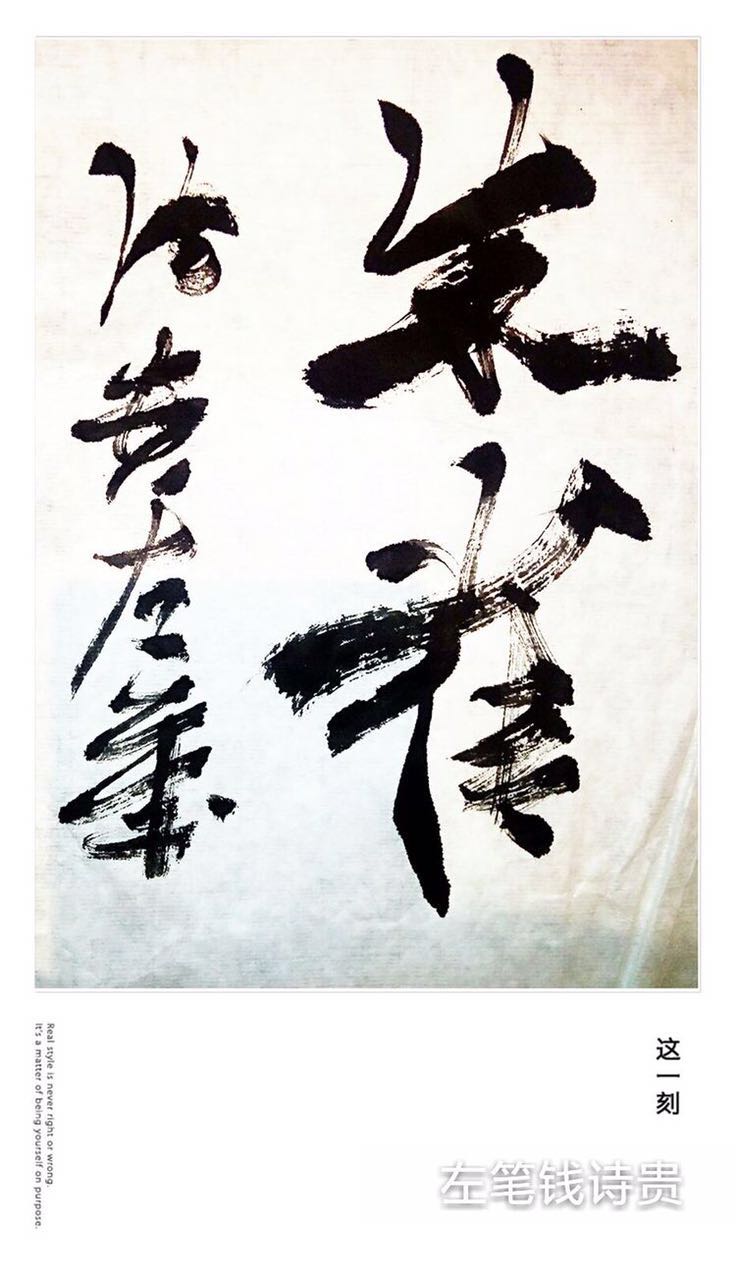 朱雀
诗贵左筆
这一刻
Real style is never right or wrong.
It's a matter of being yourself on purpose.
左笔钱诗贵